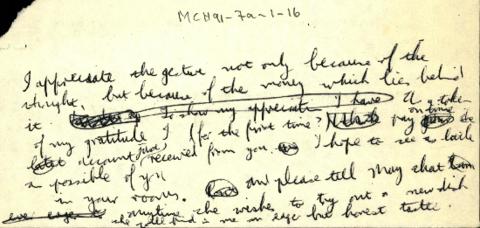 MCH91-7a-1-16
I appreciate the gesture not only because of the
thought, but because of the money which lies behind
it To show my appreciation I have As a token
of my gratitude I (for the first time?) pay on time
latest account just received from you I hope to see as
as possible of you
in your rooms. and please tell May that
anytime she wishes to try out a new dish
she will find in me an eager but honest taster.